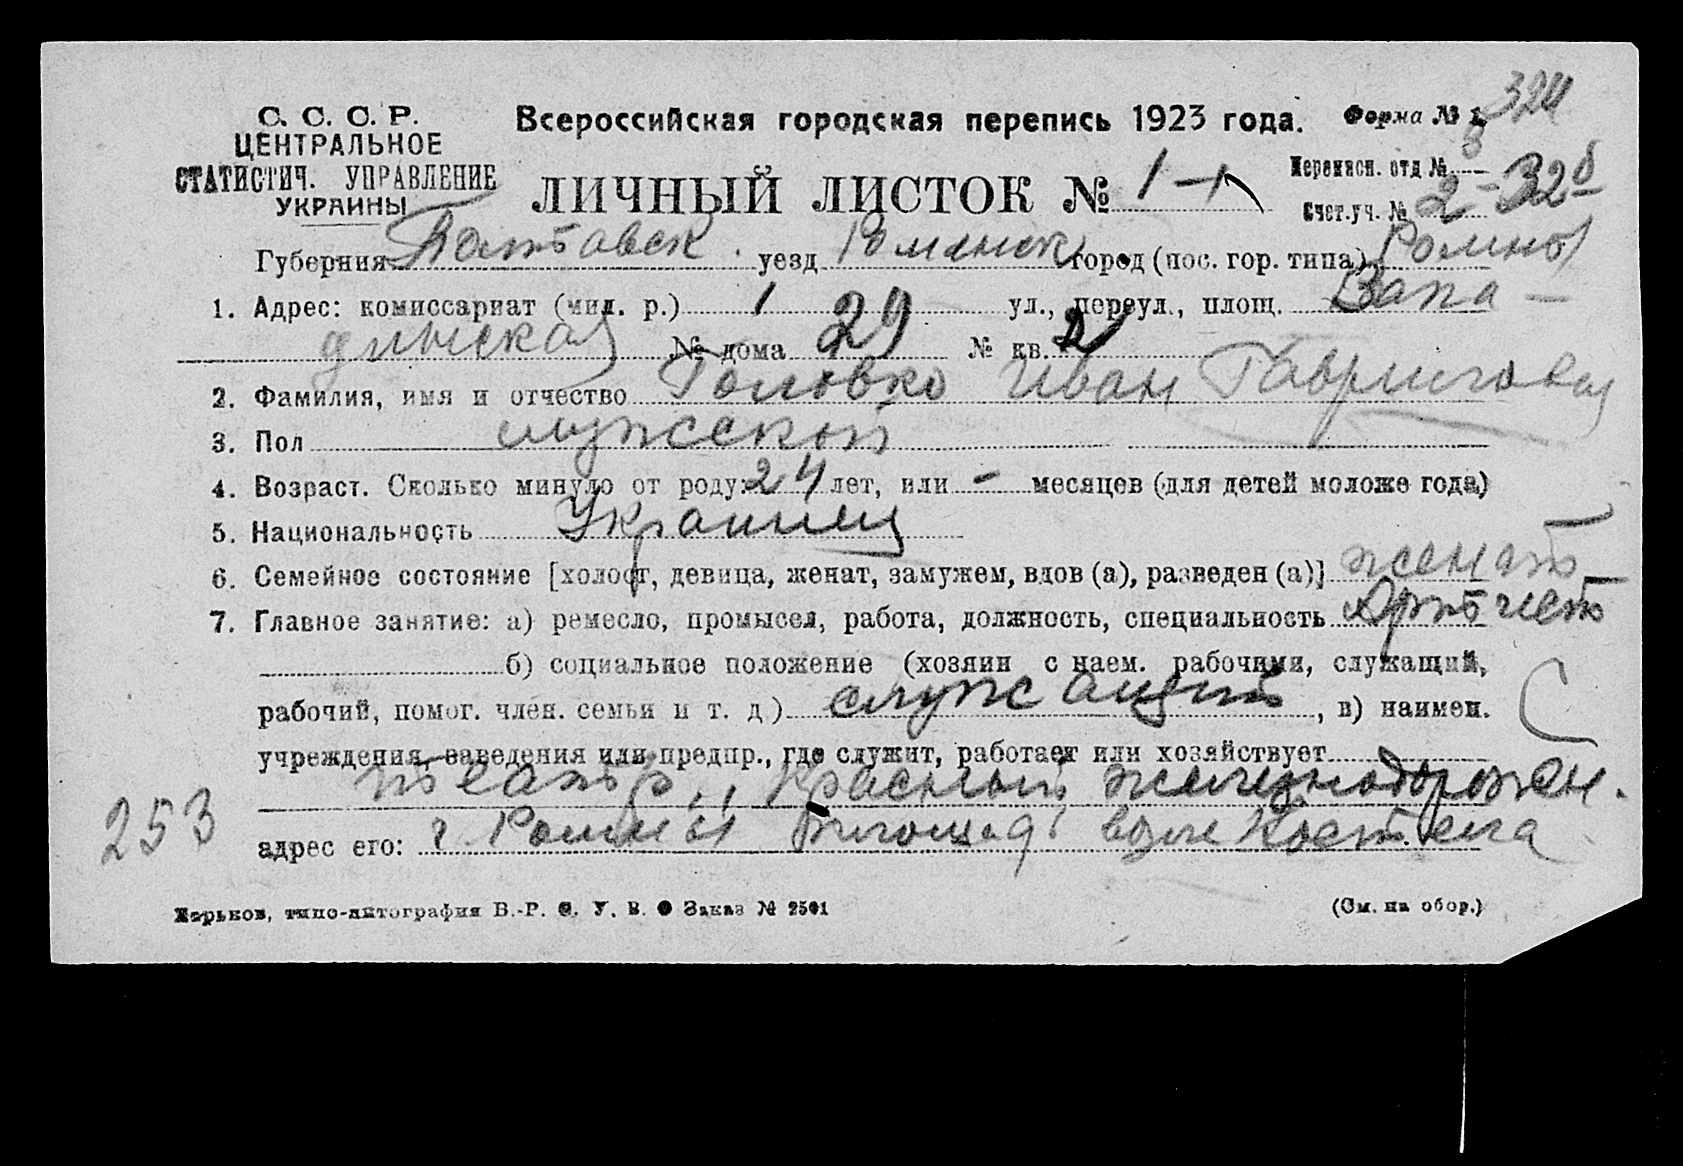 С. С. С. Р.
ЦЕНТРАЛЬНОЕ
СТАТИСТИЧ. УПРАВЛЕНИЕ
УКРАИНЫ
Всероссийская городская перепись 1923 года.
Форма № 1.
324
ЛИЧНЫЙ ЛИСТОК № 1 – 1
Переписн. отд № 3
Счет.уч. № 2 - 32б
Губерния Полтавск. уезд Роменск город (пос. гор. типа) Ромны
1. Адрес: комиссариат (мил. р.) 1 ул., переул., площ. Запа-
дынская № дома 29 № кв. 2
2. Фамилия, имя и отчество Головко Иван Гаврилович
3. Пол мужской
4. Возраст. Сколько минуло от роду: 24 лет, или - месяцев (для детей моложе года)
5. Национальность Украинец
6. Семейное состояние [холост, девица, женат, замужем, вдов (а), разведен (а)] женат
7. Главное занятие: а) ремесло, промысел, работа, должность, специальность Артист
б) социальное положение (хозяин с наем. рабочими, служащий,
рабочий, помог. член. семьи и т. д.) служащий, в) наимен.
учреждения заведения или предпр., где служит, работает или хозяйствует
театр „Красный железнодорожн.
адрес его: г Ромны площадь возле Костела
253
Харьков, типо-литография В.-Р. С. У. В. Заказ № 2501
(См. на обор.)